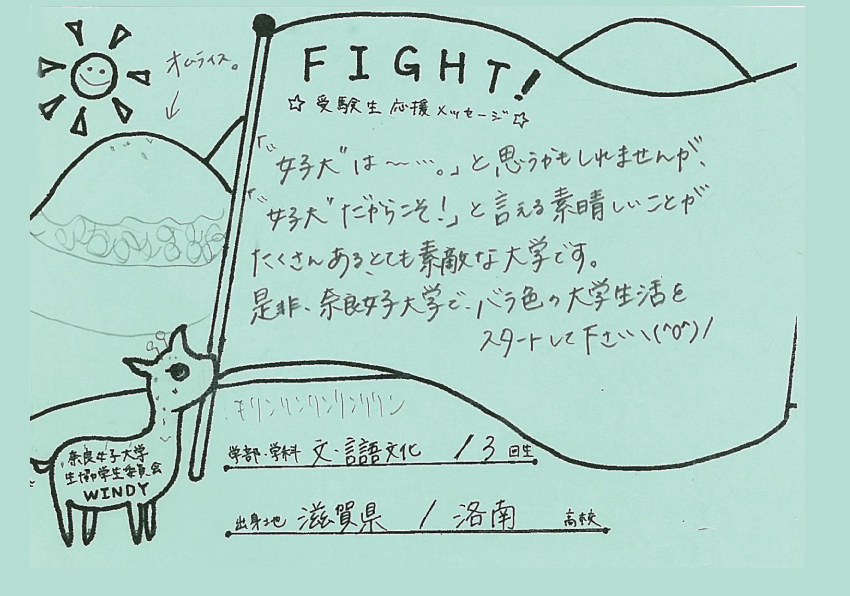 オムライス。
FIGHT!
☆受験生応援メッセージ☆
「"女子大"は〜…。」と思うかもしれませんが、
「"女子大"だからこそ!」と言える素晴しいことが
たくさんある、とても素敵な大学です。
是非、奈良女子大学で、バラ色の大学生活を
スタートして下さい\(^o^)/
キリンリンリンリンリン
学部・学科 文・言語文化 / 3 回生
奈良女子大学
生協学生委員会
WINDY
出身地 滋賀県 / 洛南 高校